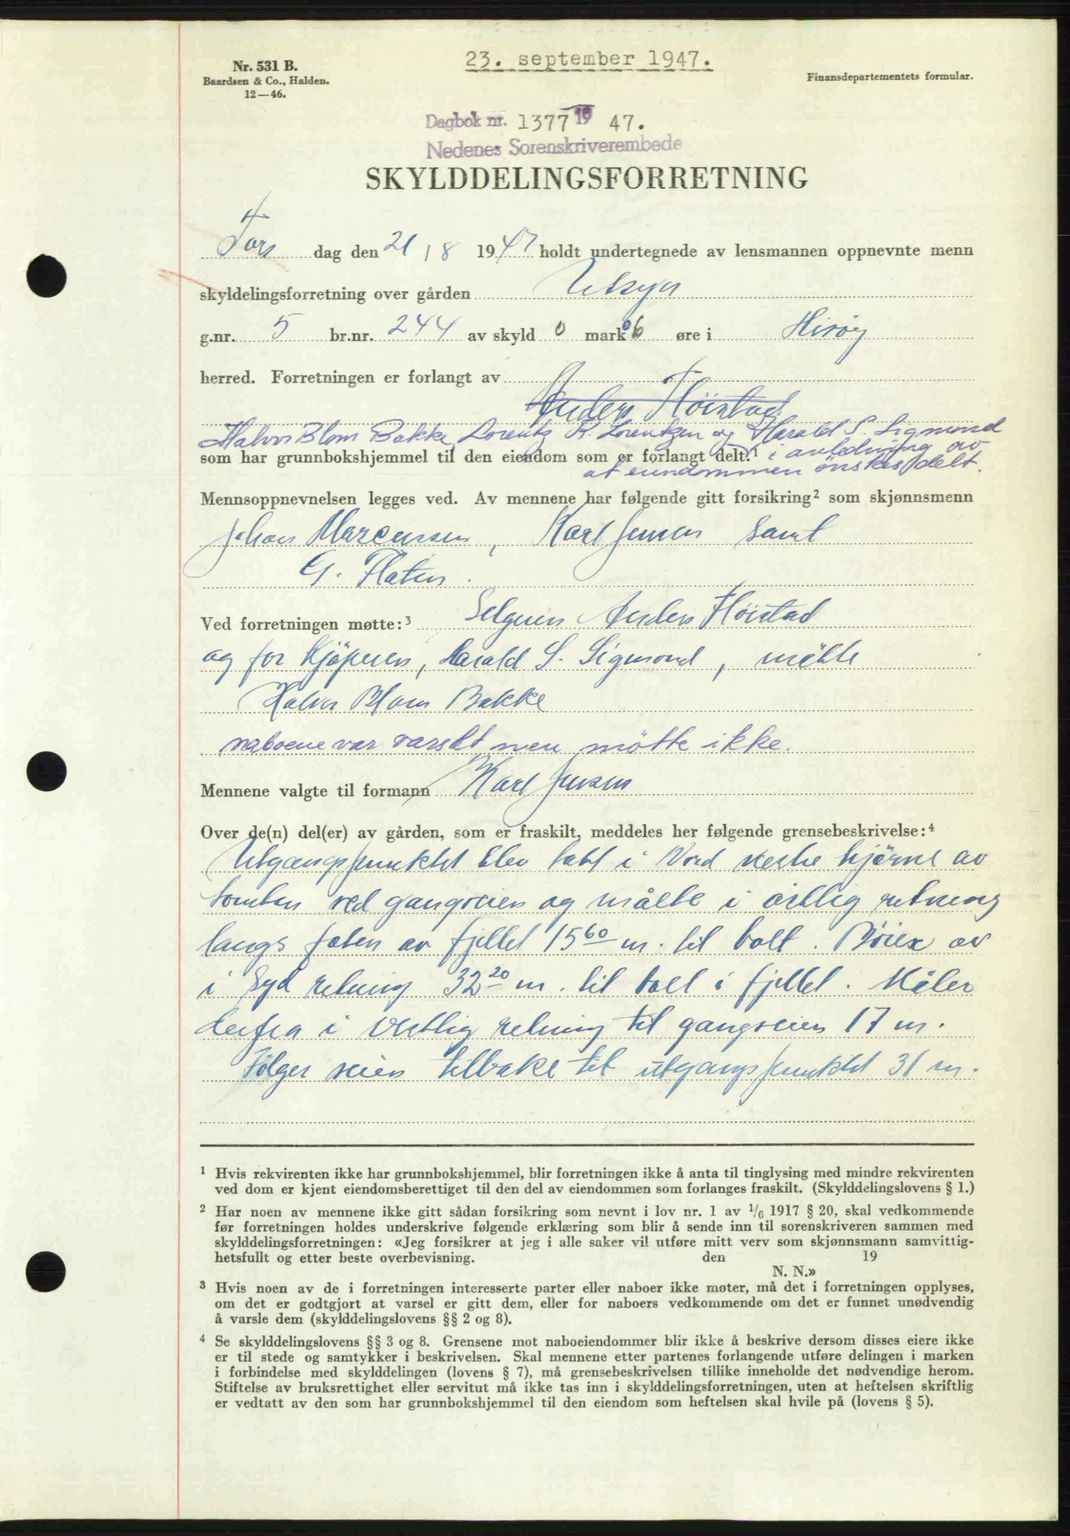 23. september 1947.
Nr. 531 B.
Baardsen & Co., Halden.
12—46.
Finansdepartementets formular.
Dagbok nr. 1377 19 47.
Nedenes Sorenskriverembede
SKYLDDELINGSFORRETNING
Tors dag den 21/8 1947 holdt undertegnede av lensmannen oppnevnte menn
skylddelingsforretning over gården Utsyn
g.nr. 5 br.nr. 244 av skyld 0 mark 06 øre i Hisøy
herred. Forretningen er forlangt av
Anders Fløistad
Halvor Blom Bakke, Lorentz R. Lorentzen og Harald S. Sigmond
som har grunnbokshjemmel til den eiendom som er forlangt delt.¹ i anledning av
at eiendommen önskes delt.
Mennsoppnevnelsen legges ved. Av mennene har følgende gitt forsikring² som skjønnsmenn
Johan Marcussen, Karl Jensen samt
G. Flaten.
Ved forretningen møtte:³ Selgeren Anders Fløistad
og for Kjöperen, Harald S. Sigmond, mötte
Halvor Blom Bakke
naboene var varslet men mötte ikke.
Mennene valgte til formann Karl Jensen
Over de(n) del(er) av gården, som er fraskilt, meddeles her følgende grensebeskrivelse:⁴
Utgangspunktet blev tatt i Nord vestre hjörne av
tomten ved gangveien og målte i östlig retning
langs foten av fjellet 15⁶⁰ m. til bolt. Böier av
i Syd retning 32²⁰ m. til bolt i fjellet. Måler
derfra i vestlig retning til gangveien 17 m.
Fölger veien tilbake til utgangspunktet 31 m.
¹ Hvis rekvirenten ikke har grunnbokshjemmel, blir forretningen ikke å anta til tinglysing med mindre rekvirenten
ved dom er kjent eiendomsberettiget til den del av eiendommen som forlanges fraskilt. (Skylddelingslovens § 1.)
² Har noen av mennene ikke gitt sådan forsikring som nevnt i lov nr. 1 av 1/6 1917 § 20, skal vedkommende
før forretningen holdes underskrive følgende erklæring som blir å sende inn til sorenskriveren sammen med
skylddelingsforretningen: «Jeg forsikrer at jeg i alle saker vil utføre mitt verv som skjønnsmann samvittig-
hetsfullt og etter beste overbevisning. den 19
N. N.»
³ Hvis noen av de i forretningen interesserte parter eller naboer ikke møter, må det i forretningen opplyses,
om det er godtgjort at varsel er gitt dem, eller for naboers vedkommende om det er funnet unødvendig
å varsle dem (skylddelingslovens §§ 2 og 8).
⁴ Se skylddelingslovens §§ 3 og 8. Grensene mot naboeiendommer blir ikke å beskrive dersom disses eiere ikke
er til stede og samtykker i beskrivelsen. Skal mennene etter partenes forlangende utføre delingen i marken
i forbindelse med skylddelingen (lovens § 7), må grensebeskrivelsen tillike inneholde det nødvendige herom.
Stiftelse av bruksrettighet eller servitut må ikke tas inn i skylddelingsforretningen, uten at heftelsen skriftlig
er vedtatt av den som har grunnbokshjemmel til den eiendom som heftelsen skal hvile på (lovens § 5).